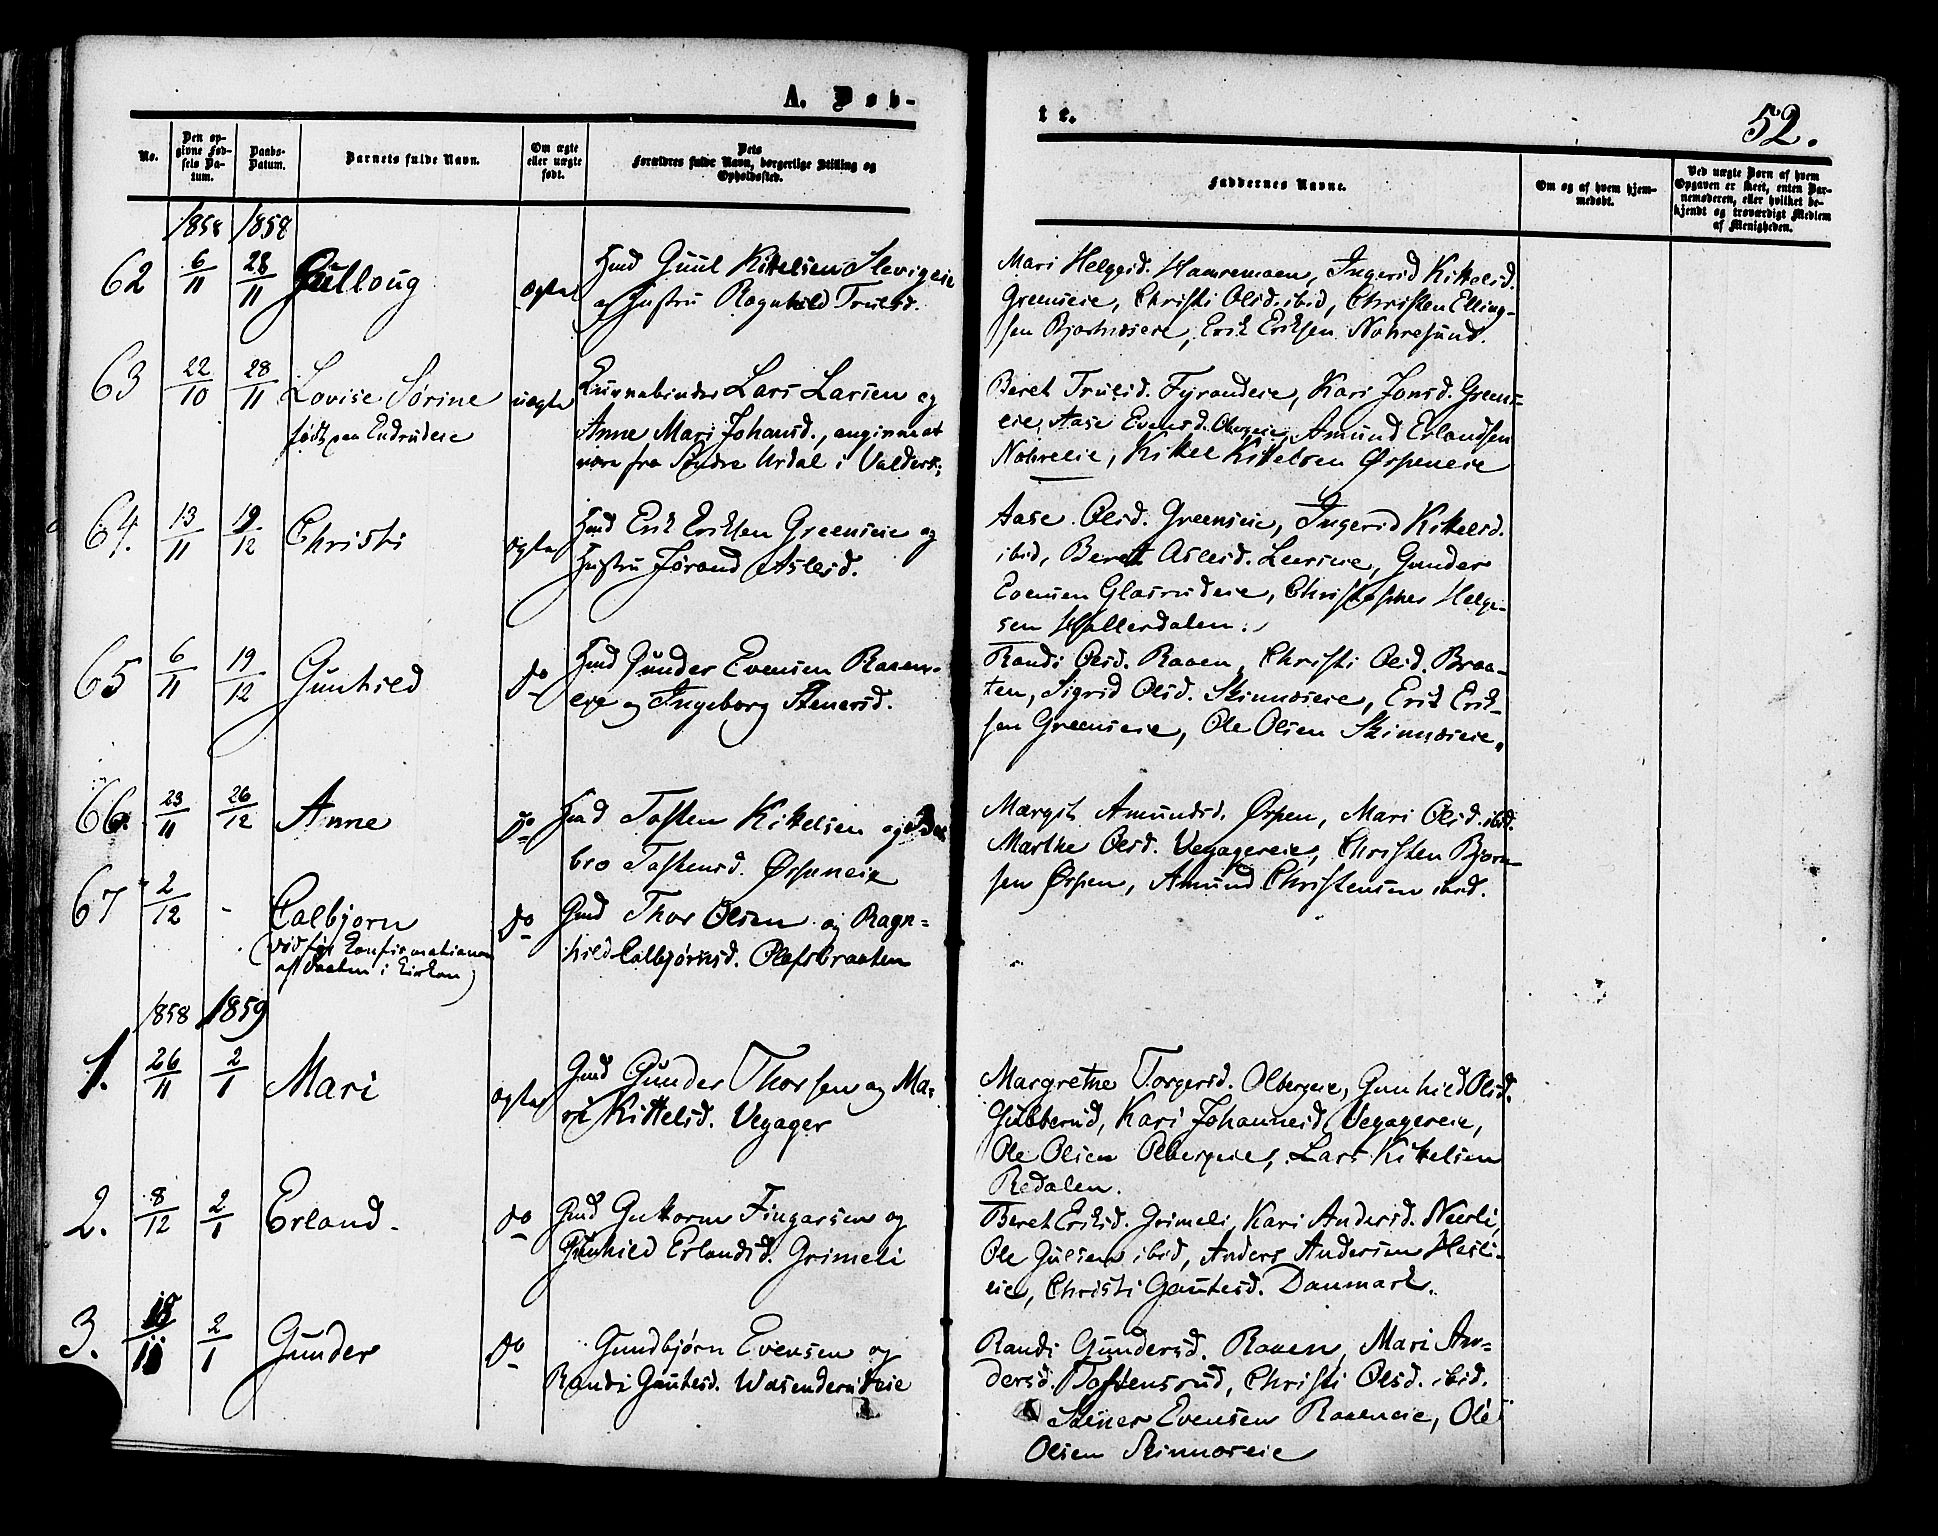 A. Døb-
te.
52.
No.
Den op-
givne Fød-
sels Da-
tum.
Daabs-
Datum.
Barnets fulde Navn.
Om ægte
eller uægte
født.
Dets
Forældres fulde Navn, borgerlige Stilling og
Opholdssted.
Faddernes Navne.
Om og af hvem hjem-
medøbt.
Ved uægte Børn af hvem
Opgaven er skeet, enten Bar-
nemoderen, eller hvilket be-
kjendt og troværdigt Medlem
af Menigheden.
1858 1858
62 6/11 28/11 Gulloug ægte
Hmd Guul Kittelsen Slevigeie
og Hustru Ragnhild Trulsd.
Mari Helgesd. Hamremoen, Ingerid Kittelsd.
Greenseie, Christi Olsd. ibid, Christen Elling-
sen Bjertnæseie, Erik Eriksen Noresund.
63 22/10 28/11 Lovise Sørine uægte
født paa Endrudeie
Lars Larsen og
Anne Mari Johansd., angivne at
være fra Søndre Urdal i Valders;
Beret Trulsd. Fyrandeie, Kari Jonsd. Greens-
eie, Aase Evensd. Olbergeie, Amund Erlandsen
Noreeie, Kittel Kittelsen Ørpeneie
64. 13/11 19/12 Christi ægte
Hmd Erik Eriksen Greenseie og
Hustru Jørand Aslesd.
Aase Olsd. Greenseie, Ingerid Kittelsd.
ibid, Beret Aslesd. Leerseie, Gunder
Evensen Glasrudeie, Christopher Helge-
sen Hallerdalen.
65 6/11 19/12 Gunhild do
Hmd Gunder Evensen Raaen-
eie og Ingeborg Stenersd.
Randi Olsd. Raaen, Christi Olsd. Braa-
ten, Sigrid Olsd. Skinnæseie, Erik Erik-
sen Greenseie, Ole Olsen Skinnæseie.
66. 23/11 26/12 Anne do
Hmd Tosten Kittelsen og
bro Tostensd. Ørpeneie
Margit Amundsd. Ørpen, Mari Olsd. ibid.
Marthe Olsd. Veyagereie, Christen Bjørn-
sen Ørpen, Amund Christensen ibid.
67 2/12 - Colbjørn do
(død før Confirmationen
af Daaben i Kirken)
Gmd Thor Olsen og Ragn-
hild Colbjørnsd. Olafsbraaten
1858 1859
1. 26/11 2/1 Mari ægte
Gmd Gunder Thorsen og Ma-
ri Kittelsd. Veyager
Margrethe Torgersd. Olbergeie, Gunhild Olsd.
Gubberud, Kari Johannesd Veyagereie,
Ole Olsen Olbergeie, Lars Kittelsen
Redalen.
2. 8/12 2/1 Erland. do
Gmd Guttorm Fingarsen og
Gunhild Erlandsd. Grimeli
Beret Eriksd. Grimeli, Kari Andersd. Neerli,
Ole Gulsen ibid, Anders Andersen Hesli-
eie, Christi Gautesd. Danmark.
3. 18/11 2/1 Gunder do
Gundbjørn Evensen og
Randi Gautesd. Wasenderudeie
Randi Gundersd. Raaen, Mari An-
dersd. Tostensrud, Christi Olsd. ibid.
Stener Evensen Raaeneie, Ole
Olsen Skinnæseie